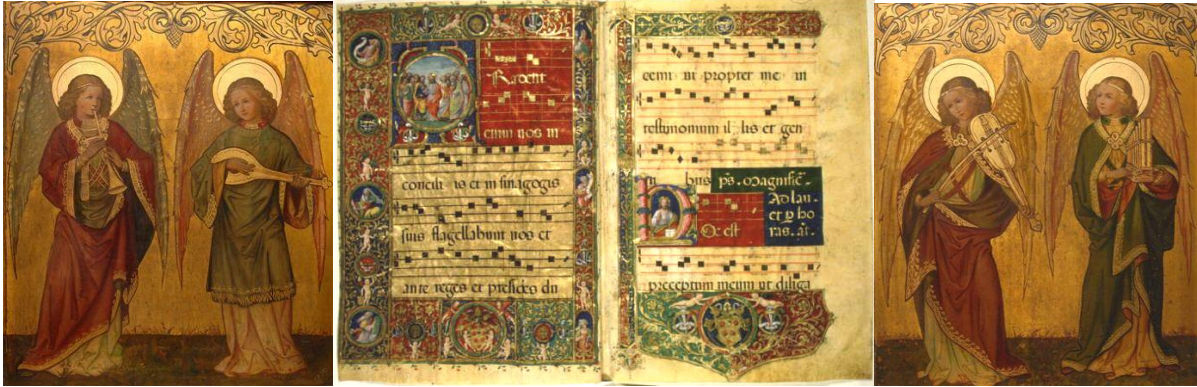 Radent
enim uos in
concili is et in sinagogis
suis flagellabunt uos et
ante reges et presides du
cemi ni propter me in
testimonium il lis et gen
ti bus ps. Magnific̄.
Ad lau-
et p ho
ras. añ.
Oc est
preceptum meum ut diliga